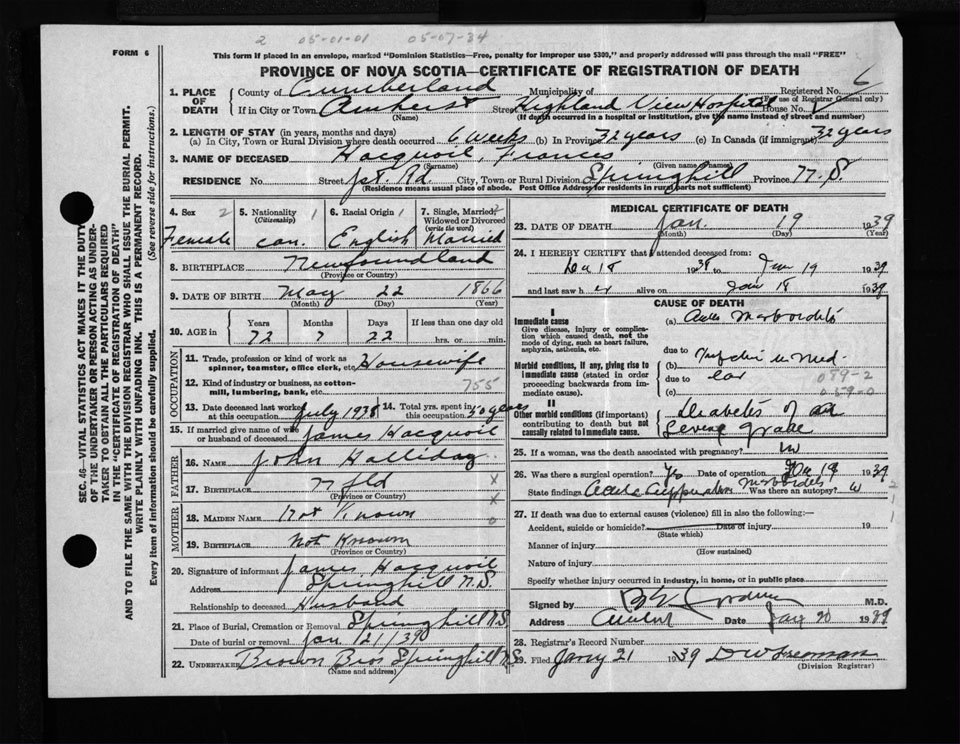 2 05-01-01 05-07-34
FORM 6
This form if placed in an envelope, marked "Dominion Statistics—Free, penalty for improper use $300," and properly addressed will pass through the mail "FREE"
PROVINCE OF NOVA SCOTIA—CERTIFICATE OF REGISTRATION OF DEATH
SEC. 46—VITAL STATISTICS ACT MAKES IT THE DUTY
OF THE UNDERTAKER OR PERSON ACTING AS UNDER-
TAKER TO OBTAIN ALL THE PARTICULARS REQUIRED
IN THE "CERTIFICATE OF REGISTRATION OF DEATH"
AND TO FILE THE SAME WITH THE DIVISION REGISTRAR WHO SHALL ISSUE THE BURIAL PERMIT.
WRITE PLAINLY WITH UNFADING INK. THIS IS A PERMANENT RECORD.
Every item of information should be carefully supplied. (See reverse side for instructions.)
1. PLACE OF DEATH County of Cumberland Municipality of Registered No. 6
(For use of Registrar General only)
If in City or Town Amherst Street Highland View Hospital House No.
(Name) (If death occurred in a hospital or institution, give the name instead of street and number)
2. LENGTH OF STAY (in years, months and days)
(a) In City, Town or Rural Division where death occurred 6 weeks (b) In Province 32 years (c) In Canada (if immigrant) 32 years
3. NAME OF DECEASED Hacquoil, Frances
(Surname) (Given name or names)
RESIDENCE No. Street Jct. Rd. City, Town or Rural Division Springhill Province N.S.
(Residence means usual place of abode. Post Office Address for residents in rural parts not sufficient)
4. Sex 2 5. Nationality 1 6. Racial Origin 1 7. Single, Married, 2
(Citizenship) Widowed or Divorced
(write the word)
Female Can. English Married
8. BIRTHPLACE Newfoundland
(Province or Country)
9. DATE OF BIRTH May 22 1866
(Month) (Day) (Year)
10. AGE in Years Months Days If less than one day old
72 7 22 hrs. or min.
OCCUPATION
11. Trade, profession or kind of work as
spinner, teamster, office clerk, etc. Housewife
12. Kind of industry or business, as cotton-
mill, lumbering, bank, etc. 755
13. Date deceased last worked
at this occupation July 1938 14. Total yrs. spent in
this occupation 50 years
15. If married give name of wife
or husband of deceased James Hacquoil
FATHER
16. NAME John Halliday
17. BIRTHPLACE Nfld x
(Province or Country)
MOTHER
18. MAIDEN NAME Not Known x
19. BIRTHPLACE Not Known 0
(Province or Country)
20. Signature of informant James Hacquoil
Address Springhill N.S.
Relationship to deceased Husband
21. Place of Burial, Cremation or Removal Springhill N.S.
Date of burial or removal Jan. 21/39
22. UNDERTAKER Brown Bros Springhill N.S.
(Name and address)
MEDICAL CERTIFICATE OF DEATH
23. DATE OF DEATH Jan. 19 1939
(Month) (Day) (Year)
24. I HEREBY CERTIFY that I attended deceased from:
Dec 18 1938 to Jan 19 1939
and last saw her alive on Jan 18 1939
CAUSE OF DEATH
I
Immediate cause
Give disease, injury or complica-
tion which caused death, not the
mode of dying, such as heart failure,
asphyxia, asthenia, etc.
(a) Acute Mastoiditis
due to
Morbid conditions, if any, giving rise to
immediate cause (stated in order
proceeding backwards from im-
mediate cause).
(b)
due to ear 089-2
(c) 059-0
II
Other morbid conditions (if important)
contributing to death but not
causally related to immediate cause.
Diabetes of
Severe grade
25. If a woman, was the death associated with pregnancy?
26. Was there a surgical operation? Yes Date of operation 1939
State findings Mastoiditis Was there an autopsy?
27. If death was due to external causes (violence) fill in also the following:—
Accident, suicide or homicide? Date of injury 19
(State which)
Manner of injury
(How sustained)
Nature of injury
Specify whether injury occurred in industry, in home, or in public place
Signed by M.D.
Address Amherst Date Jany 20 1939
28. Registrar's Record Number
29. Filed Jany 21 1939
(Division Registrar)